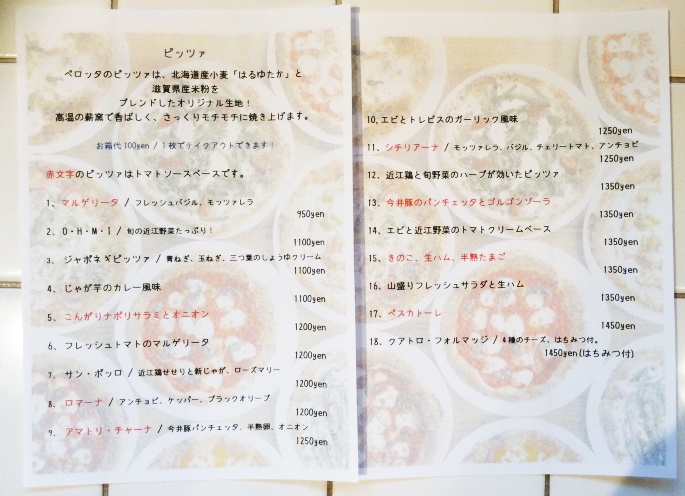 ピッツァ
ペロッタのピッツァは、北海道産小麦「はるゆたか」と
滋賀県産米粉を
ブレンドしたオリジナル生地！
高温の薪窯で香ばしく、さっくりモチモチに焼き上げます。
お箱代100yen / 1枚でテイクアウトできます！
赤文字のピッツァはトマトソースベースです。
1、マルゲリータ / フレッシュバジル、モッツァレラ
950yen
2、O・H・M・I / 旬の近江野菜たっぷり！
1100yen
3、ジャポネギピッツァ / 青ねぎ、玉ねぎ、三つ葉のしょうゆクリーム
1100yen
4、じゃが芋のカレー風味
1100yen
5、こんがりナポリサラミとオニオン
1200yen
6、フレッシュトマトのマルゲリータ
1200yen
7、サン・ポッロ / 近江鶏せせりと新じゃが、ローズマリー
1200yen
8、ロマーナ / アンチョビ、ケッパー、ブラックオリーブ
1200yen
9、アマトリ・チャーナ / 今井豚パンチェッタ、半熟卵、オニオン
1250yen
10、エビとトレビスのガーリック風味
1250yen
11、シチリアーナ / モッツァレラ、バジル、チェリートマト、アンチョビ
1250yen
12、近江鶏と旬野菜のハーブが効いたピッツァ
1350yen
13、今井豚のパンチェッタとゴルゴンゾーラ
1350yen
14、エビと近江野菜のトマトクリームベース
1350yen
15、きのこ、生ハム、半熟たまご
1350yen
16、山盛りフレッシュサラダと生ハム
1350yen
17、ペスカトーレ
1450yen
18、クアトロ・フォルマッジ / 4種のチーズ、はちみつ付。
1450yen(はちみつ付)